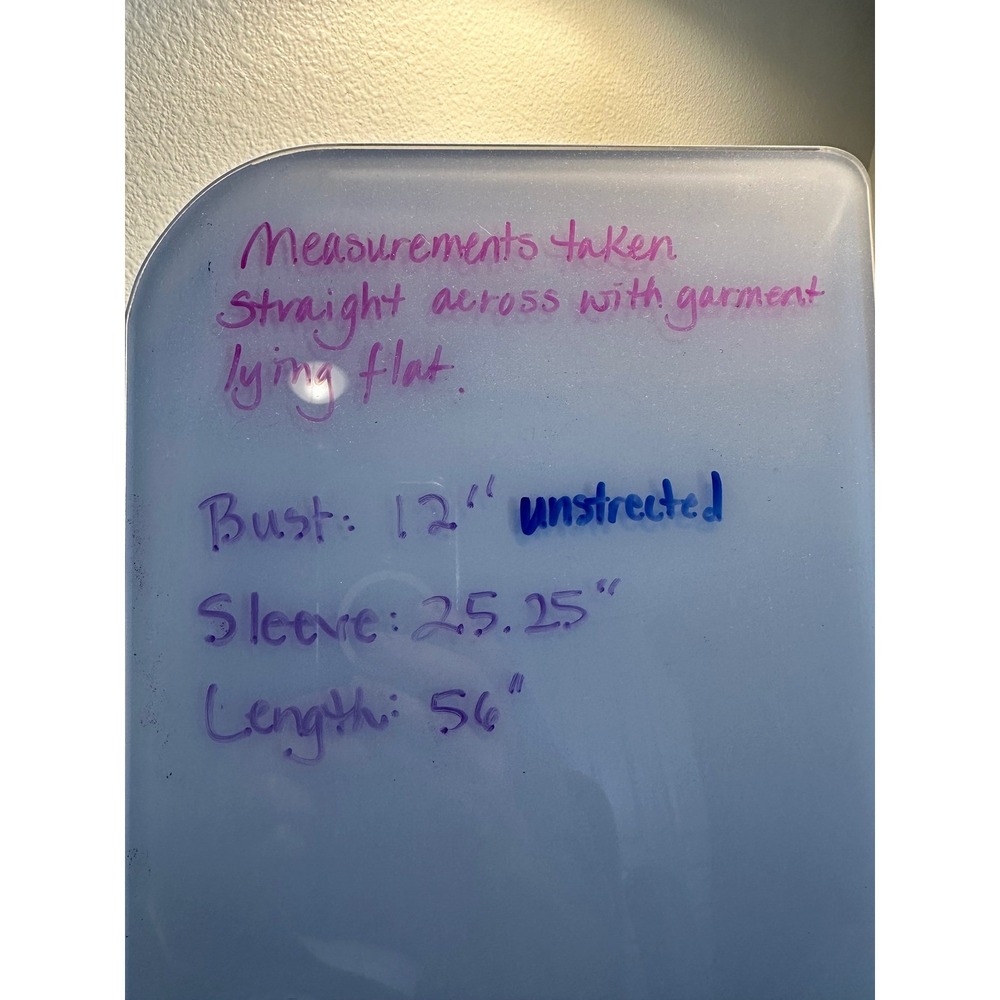 Measurements taken
straight across with garment
lying flat.
Bust: 12" unstrected
Sleeve: 25.25"
Length: 56"